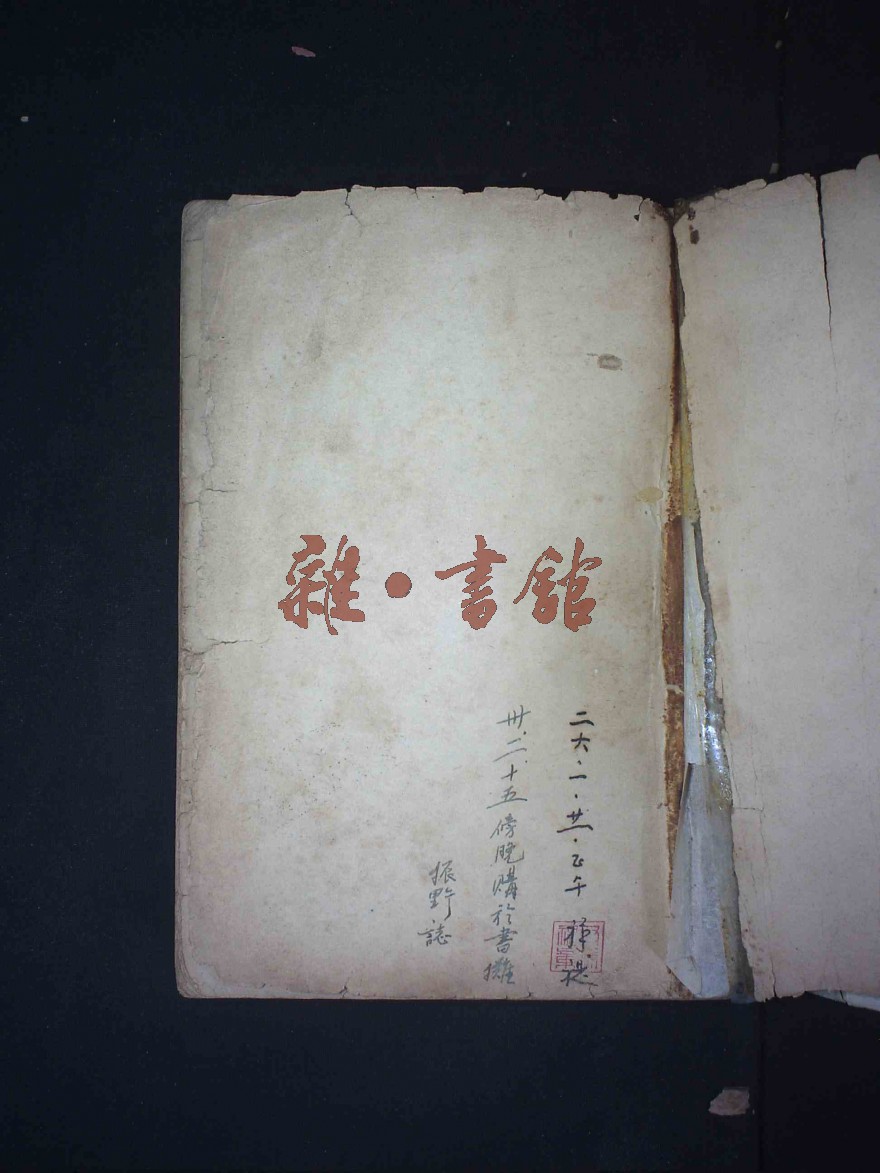 雜·書館
二六·一·廿一·正午
卅·二·十五傍晚購於書攤
振野誌